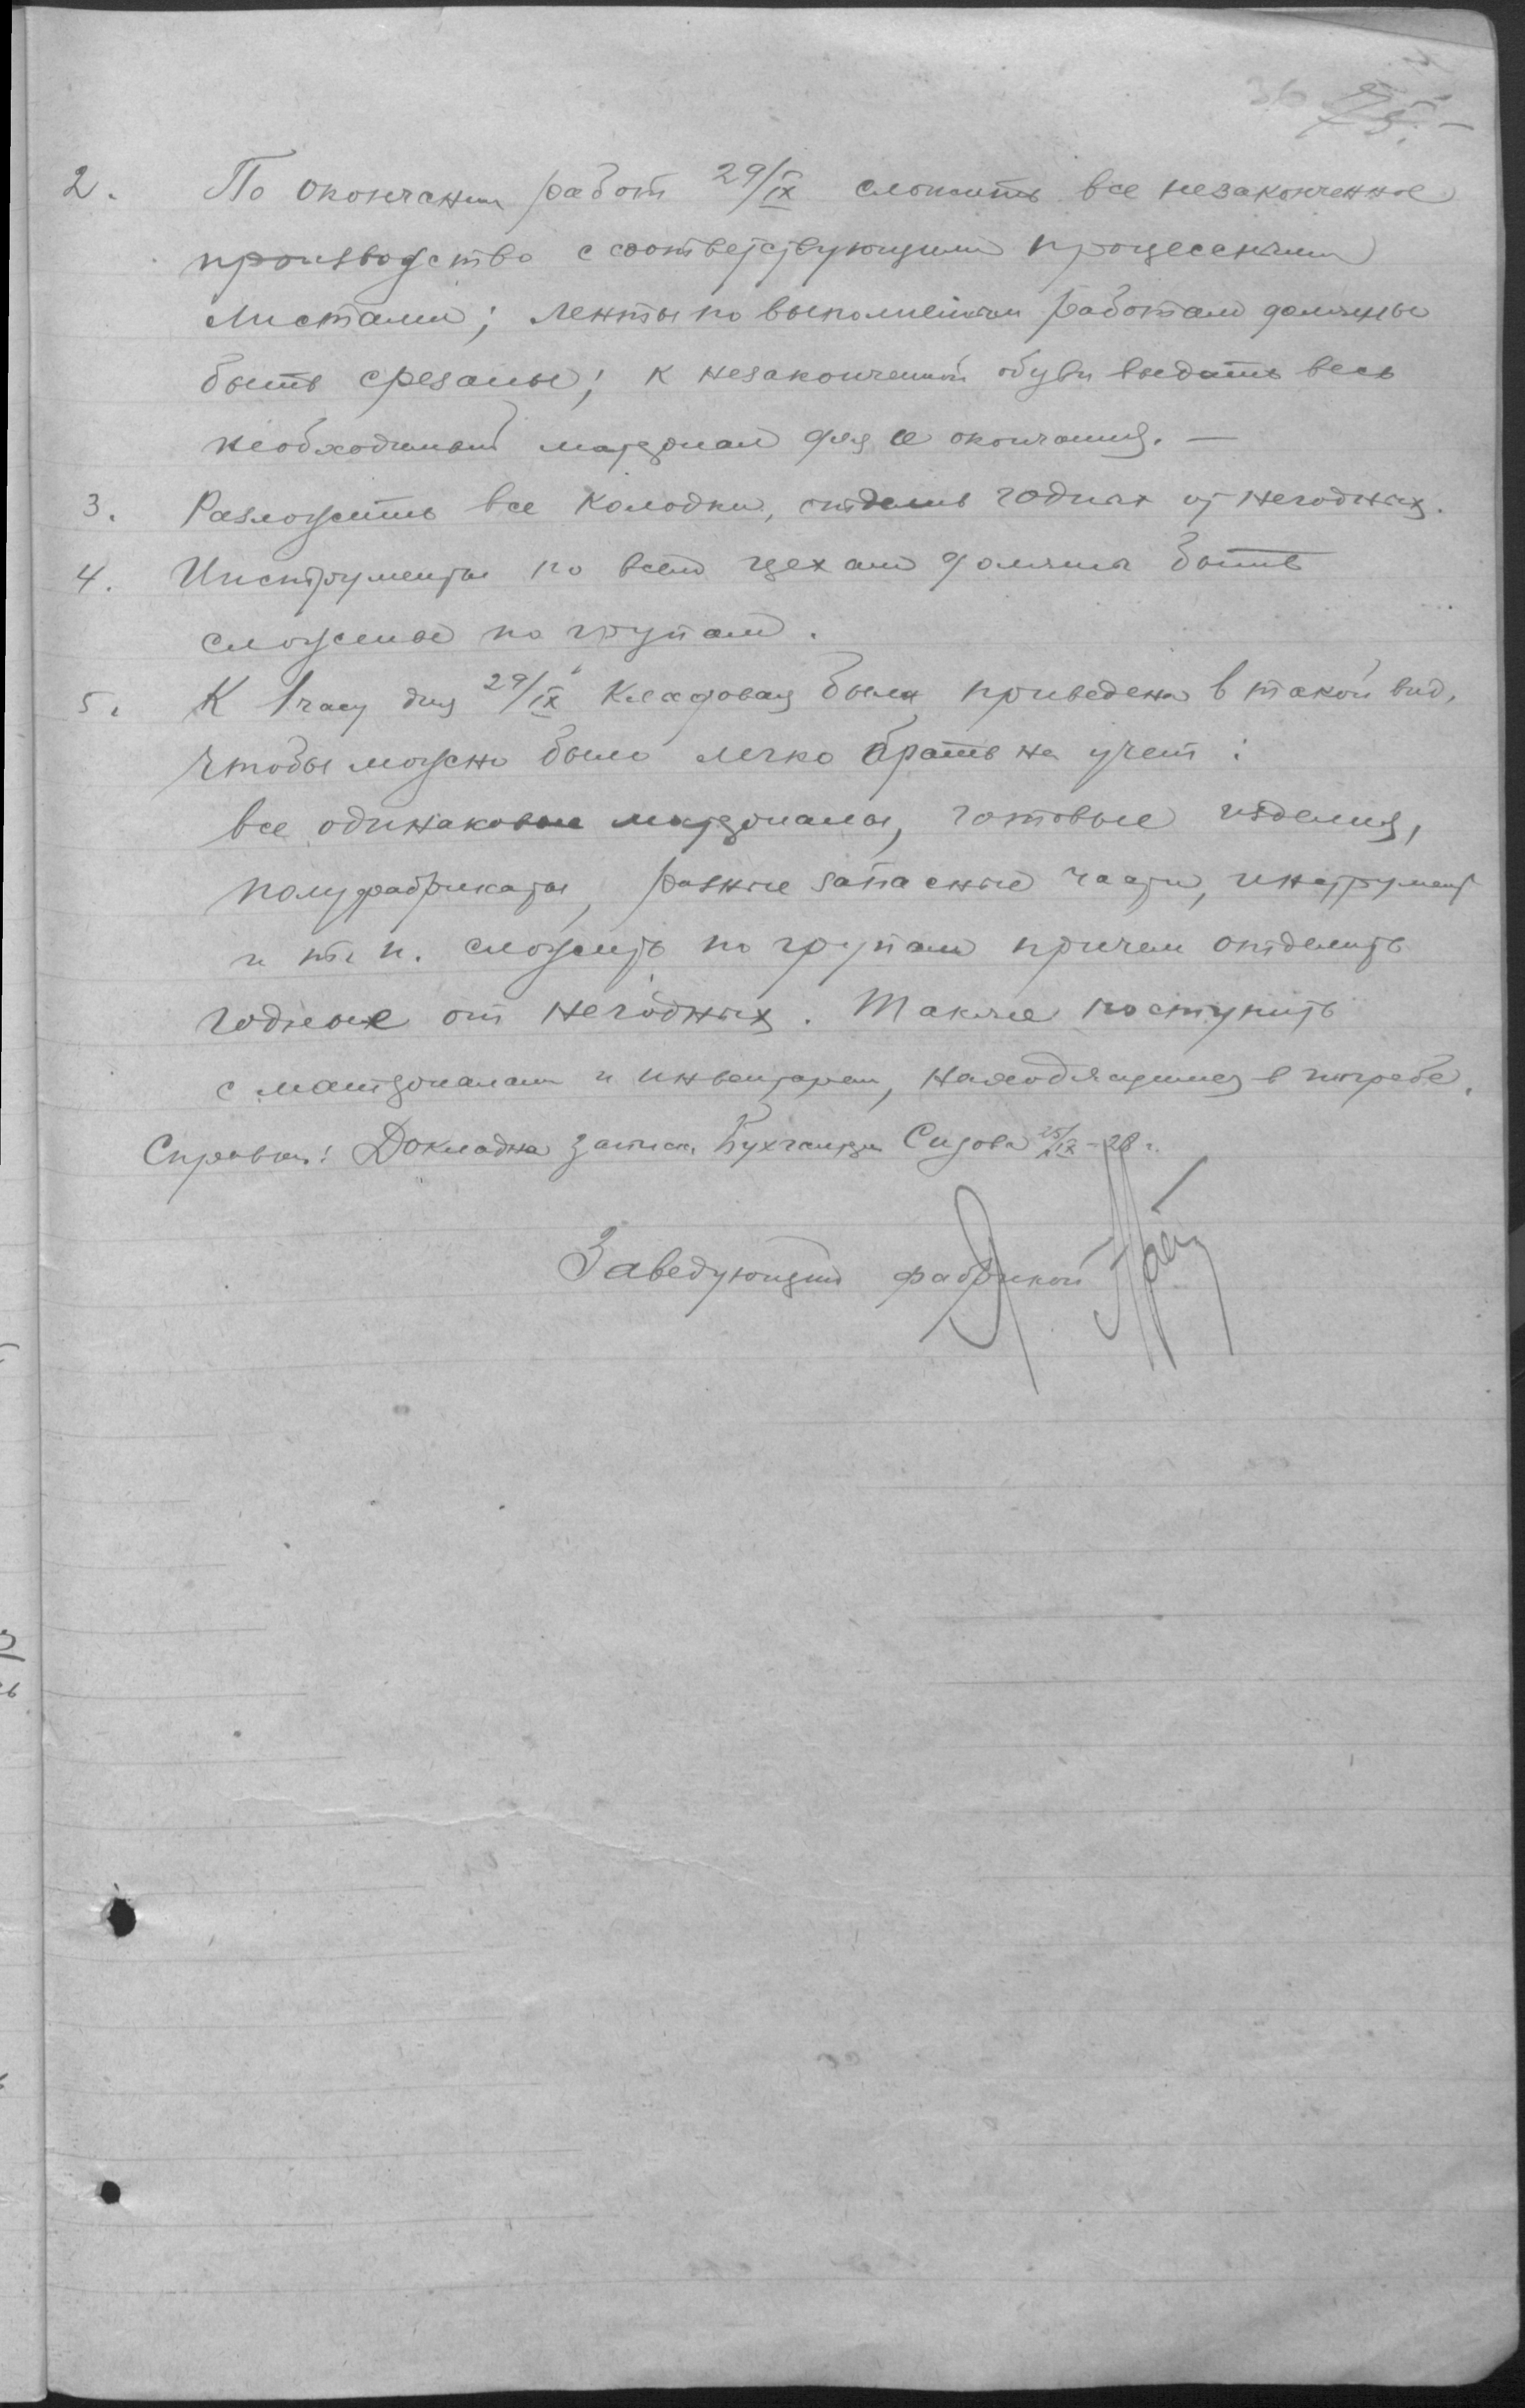 36 75. –
2. По окончании работ 29/IX сложить все незаконченное
производство с соответствующими процессными
листами; ленты по выполненным работам должны
быть срезаны; к незаконченной обуви выдать весь
необходимый материал для ее окончания. —
3. Разложить все колодки, отделив годных от негодных.
4. Инструменты по всем цехам должны быть
сложены по групам.
5. К 1 часу дня 29/IX кладовая была приведена в такой вид,
чтобы можно было легко брать на учет:
все одинаковые материалы, готовые изделия,
полуфабрикаты, разные запасные части, инструмент
и т. п. сложить по групам причем отделить
годные от негодных. Также поступить
с материалами и инвентарем, находящимися в погребе.
Справка: Докладная записка Бухгалтера Сизова 25/IX – 28 г.
Заведующий фабрикой Я.